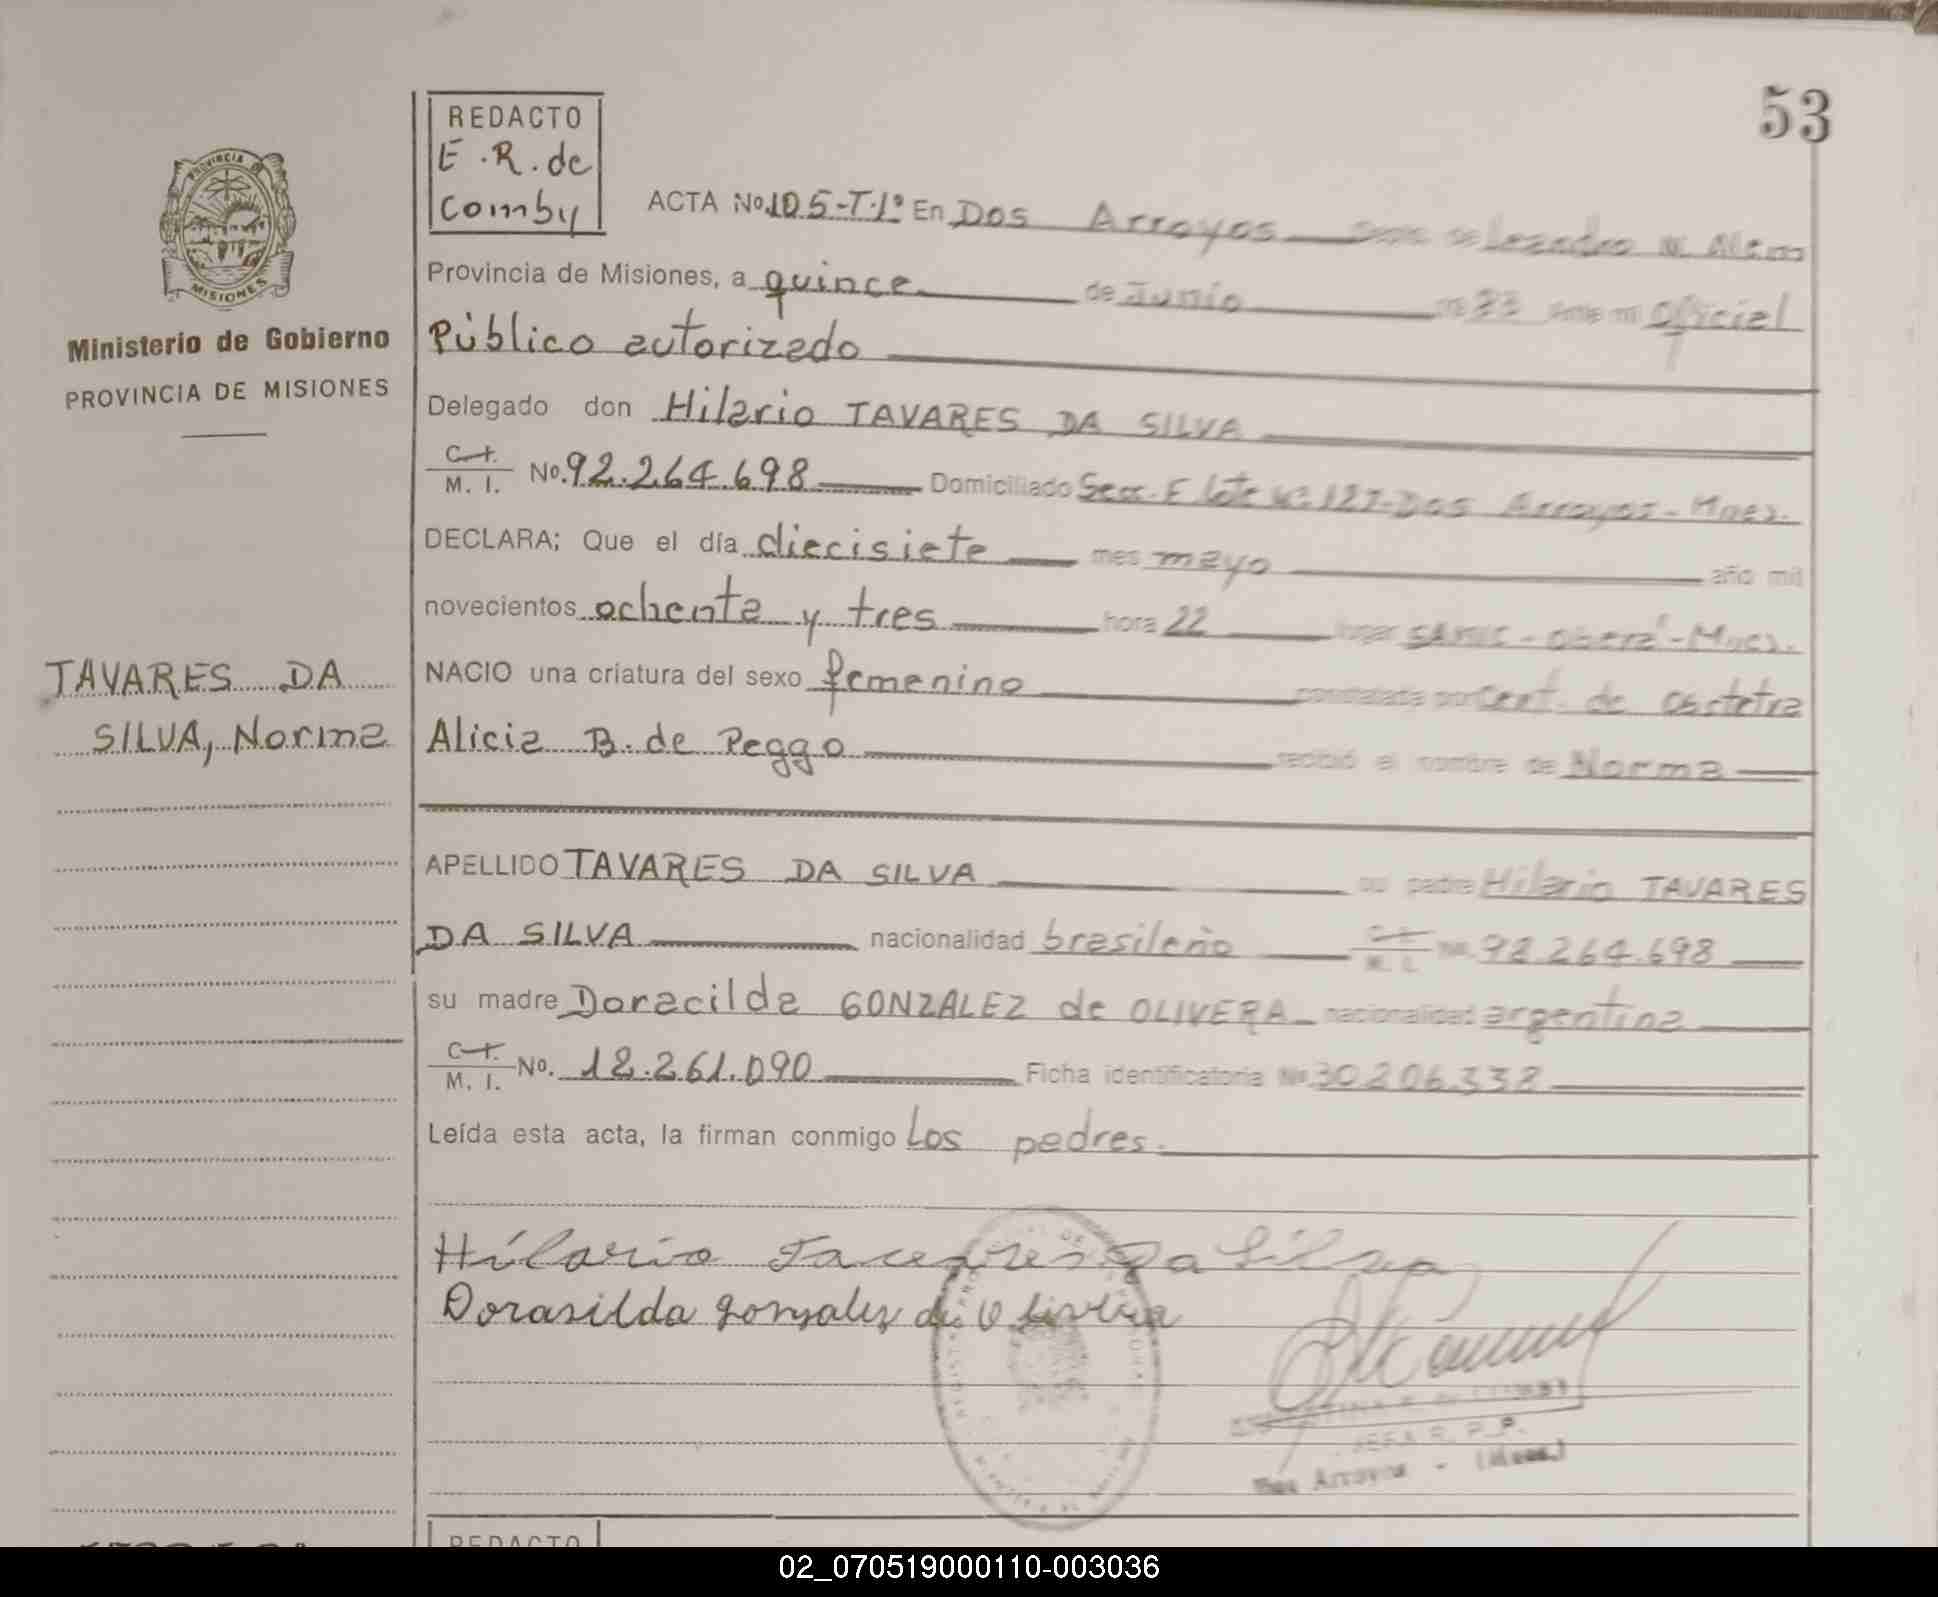 53
REDACTO
E.R. de
Comby
ACTA No. 105-T.1º En Dos Arroyos Dpto. de Leandro N. Alem
PROVINCIA DE
MISIONES
Ministerio de Gobierno
PROVINCIA DE MISIONES
Provincia de Misiones, a quince de Junio de 83 ante mí Oficial
Público autorizado
Delegado don Hilario TAVARES DA SILVA
C.I.
M. I. No. 92.264.698 Domiciliado Secc. F lote Nº 127-Dos Arroyos - Mnes.
DECLARA; Que el día diecisiete mes mayo año mil
novecientos ochenta y tres hora 22 lugar SAMIC - Oberá - Mnes.
TAVARES DA
SILVA, Norma
NACIO una criatura del sexo femenino constatada por Cert. de Obstetra
Alicia B. de Peggo recibió el nombre de Norma
APELLIDO TAVARES DA SILVA su padre Hilario TAVARES
DA SILVA nacionalidad brasileño C.I.
M. I. No. 92.264.698
su madre Doracilda GONZALEZ de OLIVERA nacionalidad argentina
C.I.
M. I. No. 18.261.090 Ficha identificatoria Nº 30.206.338
Leída esta acta, la firman conmigo Los padres.
Hilario Tavares Da Silva
Dorasilda gonzalez de Olivera
JEFA R. P. P.
Dos Arroyos - (Mnes.)
REDACTO
02_070519000110-003036